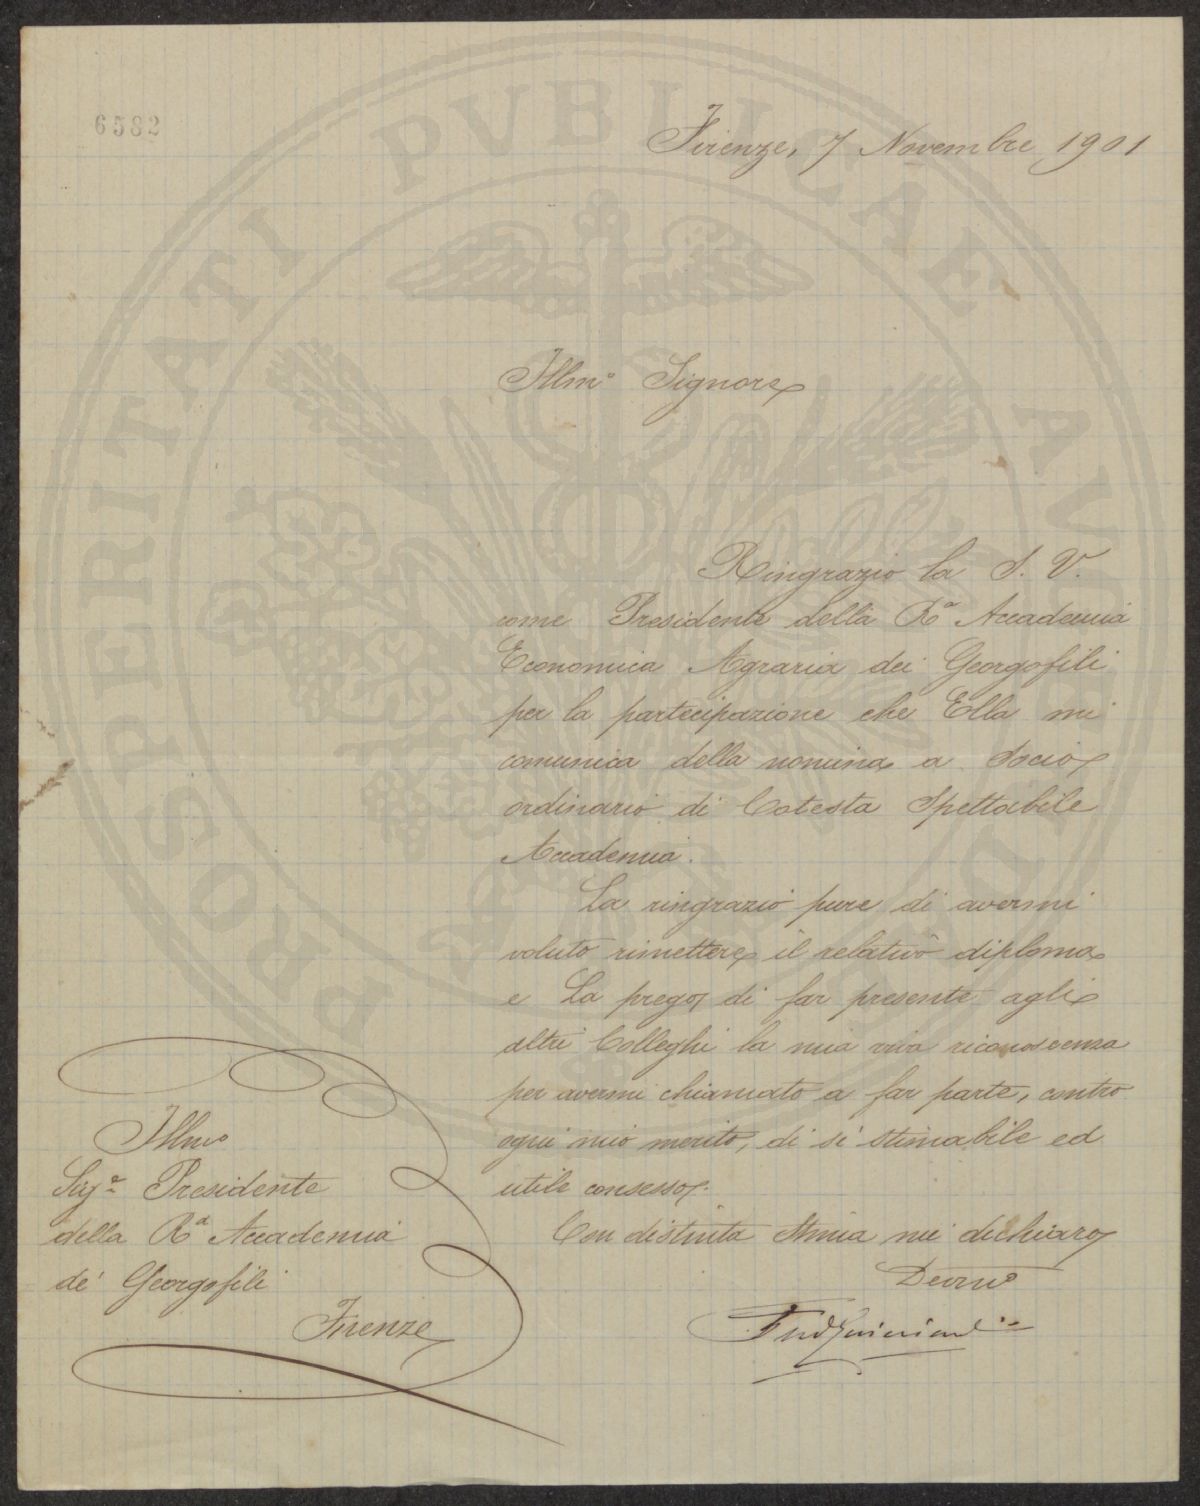 6582
PROSPERITATI PUBLICAE AUGENDAE
Firenze, 7 Novembre 1901
Illmo Signore
Ringrazio la S. V.
come Presidente della Ra Accademia
Economica Agraria dei Georgofili
per la partecipazione che Ella mi
comunica della nomina a Socio
ordinario di Cotesta Spettabile
Accademia.
La ringrazio pure di avermi
voluto rimettere il relativo diploma
e La prego di far presente agli
altri Colleghi la mia viva riconoscenza
per avermi chiamato a far parte, contro
ogni mio merito, di sì stimabile ed
utile consesso.
Con distinta stima mi dichiaro
Devmo
Illmo
Sigr Presidente
della Ra Accademia
de' Georgofili
Firenze